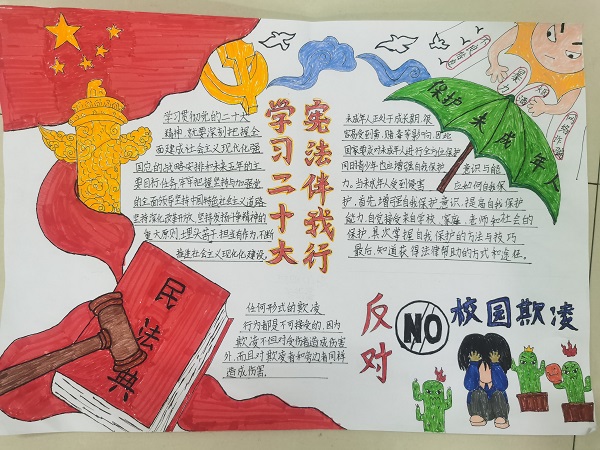 学习二十大
宪法伴我行
学习贯彻党的二十大
精神,就要深刻把握全
面建成社会主义现代化强
国它的战略安排和未来五年的主
要目标任务,牢牢把握坚持与加强党
的全面领导坚持中国特色社会主义道路
坚持深化改革开放、坚持发扬斗争精神的
重大原则,埋头苦干,担当有作为,不断
推进社会主义现代化建设。
保护未成年人
未成年人正处于成长期,很
容易受到黄、赌、毒等影响,因此
国家要求对未成年人进行全方位保护
同时青少年也应增强自我保护 意识与能
力。当未成年人受到侵害 应如何自我保
护,首先增强自我保护意识,提高自我保护
能力,自觉接受来自学校、家庭、老师和社会的
保护,其次掌握自我保护的方法与技巧
最后,知道获得法律帮助的方式和途径。
民法典
任何形式的欺凌
行为都是不可接受的,因为
欺凌不但对受伤者造成伤害
外,而且对欺凌者和旁边者同样
造成伤害.
反对
NO
校园欺凌